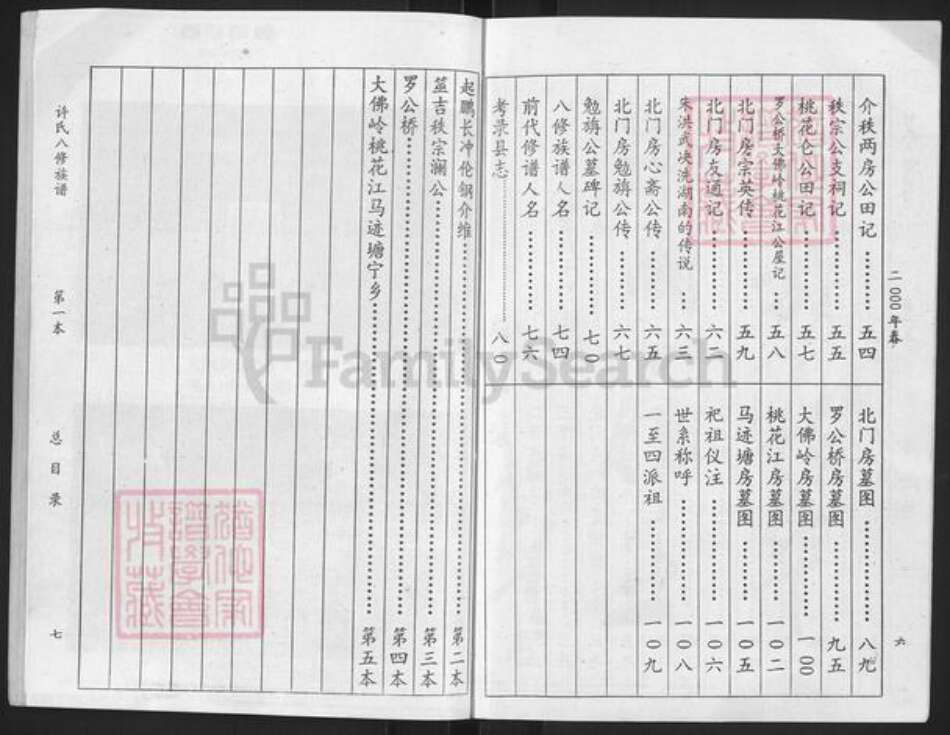 二〇〇〇年春
六
介秩两房公田记…………五四
秩宗公支祠记…………五五
桃花仑公田记…………五七
罗公桥大佛岭桃花江公屋记…五八
北门房宗英传…………五九
北门房友通记…………六二
朱洪武决洗湖南的传说…六三
北门房心斋公传…………六五
北门房勉旃公传…………六七
勉旃公墓碑记…………七〇
八修族谱人名…………七四
前代修谱人名…………七六
考录县志…………八〇
北门房墓图…………八九
罗公桥房墓图…………九五
大佛岭房墓图…………一〇〇
桃花江房墓图…………一〇二
马迹塘房墓图…………一〇五
祀祖仪注…………一〇六
世系称呼…………一〇八
一至四派祖…………一〇九
起鹏长冲伦钢介维…………第二本
筮吉秩宗澜公…………第三本
罗公桥…………第四本
大佛岭桃花江马迹塘宁乡…………第五本
许氏八修族谱
第一本
总目录
七
FamilySearch